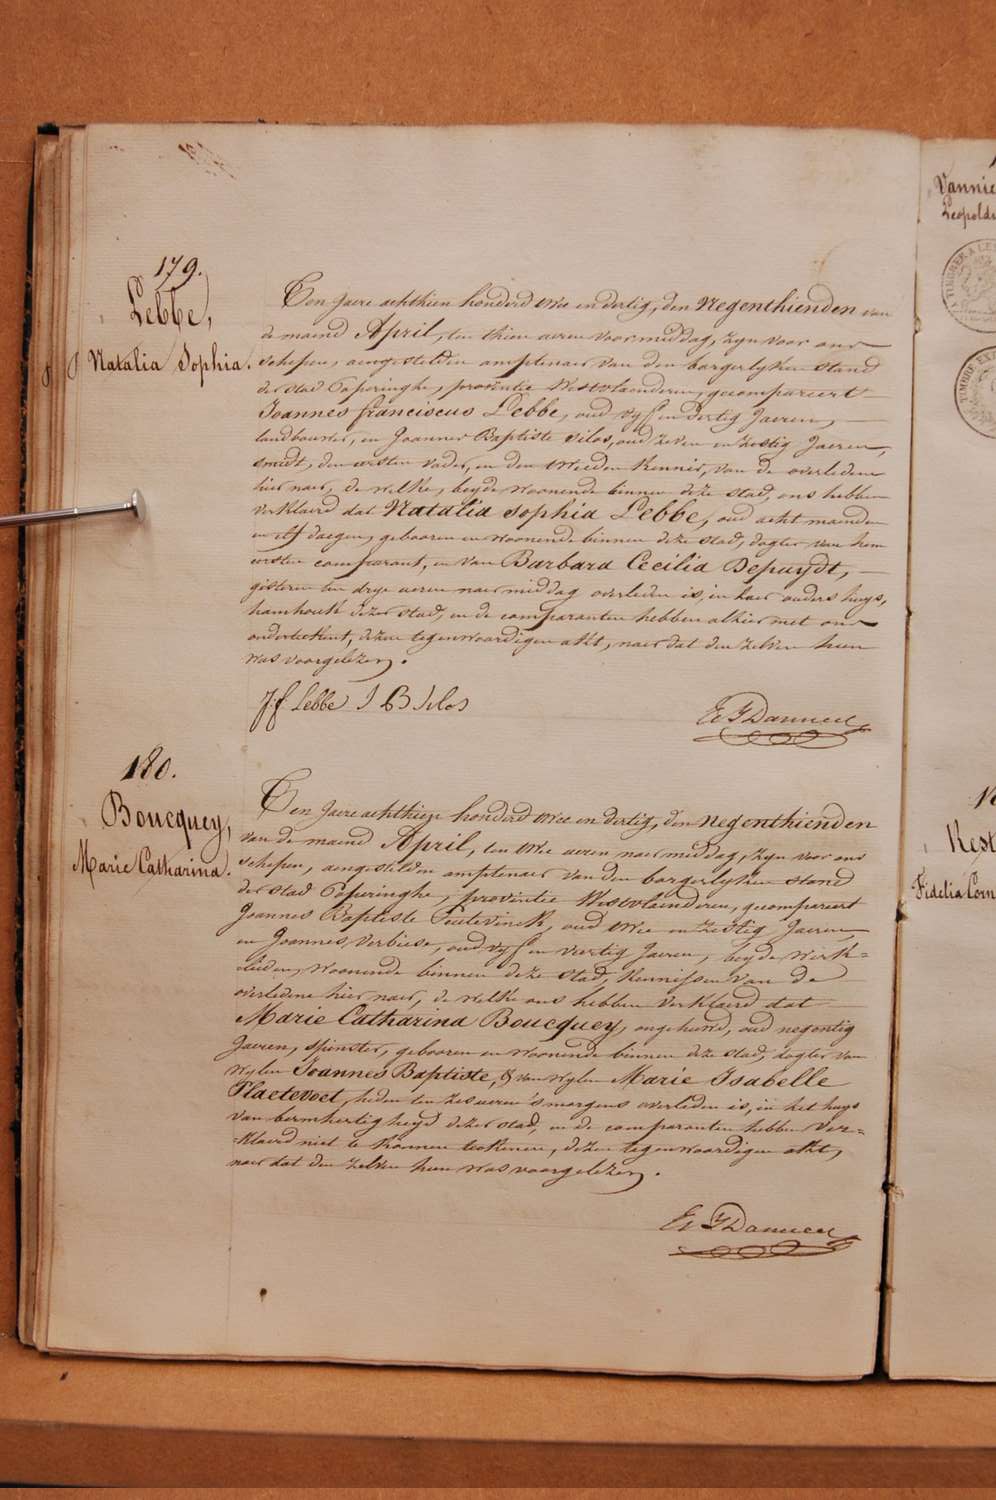 179.
Lebbe,
Natalia Sophia.
Ten Jaere achthien honderd twee en dertig, den Negenthienden van
de maend April, ten thien ueren voormiddag, zyn voor ons
schepen, aengestelden amptenaer van den borgerlyken stand
der stad Poperinghe, provintie Westvlaenderen, gecompareert
Joannes franciscus Lebbe, oud vyf en dertig Jaeren,
landbouwer, en Joannes Baptiste Silos, oud zeven en zestig Jaeren,
smidt, den eersten vader, en den tweeden kennis, van de overledene
hier naer, de welke, beyde woonende binnen deze stad, ons hebben
verklaerd dat Natalia Sophia Lebbe, oud acht maenden
en elf daegen, gebooren en woonende binnen deze stad, dogter van hem
eersten comparant, en van Barbara Cecilia Depuydt,
gisteren ten drye ueren naermiddag overleden is, in haer ouders huys,
hamhoek dezer stad, en de comparanten hebben alhier met ons
onderteekent, dezen tegenwoordigen akt, naer dat den zelven hun
was voorgelezen.
J:f Lebbe J B Silos
180.
Boucquey,
Marie Catharina.
Ten Jaere achthien honderd twee en dertig, den negenthienden
van de maend April, ten twee ueren naermiddag, zyn voor ons
schepen, aengestelden amptenaer van den borgerlyken stand
der stad Poperinghe, provintie Westvlaenderen, gecompareert
Joannes Baptiste oud twee en zestig Jaeren,
en Joannes Verbiese, oud vyf en veertig Jaeren, beyde werk=
=lieden, woonende binnen deze stad, kennissen van de
overledene hier naer, de welke ons hebben verklaerd dat
Marie Catharina Boucquey, ongehuwd, oud negentig
Jaeren, spinster, gebooren en woonende binnen deze stad, dogter van
wylen Joannes Baptiste, & van wylen Marie Isabelle
Plaetevoet, heden ten zes ueren 's morgens overleden is, in het huys
van bermhertigheyd dezer stad, en de comparanten hebben ver=
=klaerd niet te konnen teekenen, dezen tegenwoordigen akt,
naer dat den zelven hun was voorgelezen.
Vannie
Leopold
Kest
Fidelia Corn